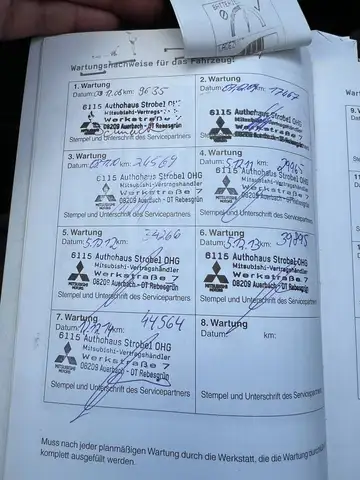 Wartungsnachweise für das Fahrzeug!
1. Wartung
Datum: km: 9635
6115 Authohaus Strobel OHG
Mitsubishi-Vertragshändler
Werkstraße 7
08209 Auerbach - OT Rebesgrün
2. Wartung
Datum: km: 17467
6115 Authohaus Strobel OHG
Mitsubishi-Vertragshändler
Werkstraße 7
08209 Auerbach - OT Rebesgrün
3. Wartung
Datum: km:
6115 Authohaus Strobel OHG
Mitsubishi-Vertragshändler
Werkstraße 7
08209 Auerbach - OT Rebesgrün
Stempel und Unterschrift des Servicepartners
4. Wartung
Datum: 5.12.11 km: 29965
6115 Authohaus Strobel OHG
Mitsubishi-Vertragshändler
Werkstraße 7
08209 Auerbach - OT Rebesgrün
Stempel und Unterschrift des Servicepartners
5. Wartung
Datum: km: 34266
6115 Authohaus Strobel OHG
Mitsubishi-Vertragshändler
Werkstraße 7
08209 Auerbach - OT Rebesgrün
MITSUBISHI MOTORS
Stempel und Unterschrift des Servicepartners
6. Wartung
Datum: 5.12.13 km: 39895
6115 Authohaus Strobel OHG
Mitsubishi-Vertragshändler
Werkstraße 7
08209 Auerbach - OT Rebesgrün
MITSUBISHI MOTORS
Stempel und Unterschrift des Servicepartners
7. Wartung
Datum: km: 44564
6115 Authohaus Strobel OHG
Mitsubishi-Vertragshändler
Werkstraße 7
08209 Auerbach - OT Rebesgrün
MITSUBISHI MOTORS
Stempel und Unterschrift des Servicepartners
8. Wartung
Datum: km:
Stempel und Unterschrift des Servicepartners
Muss nach jeder planmäßigen Wartung durch die Werkstatt, die die Wartung
komplett ausgefüllt werden.